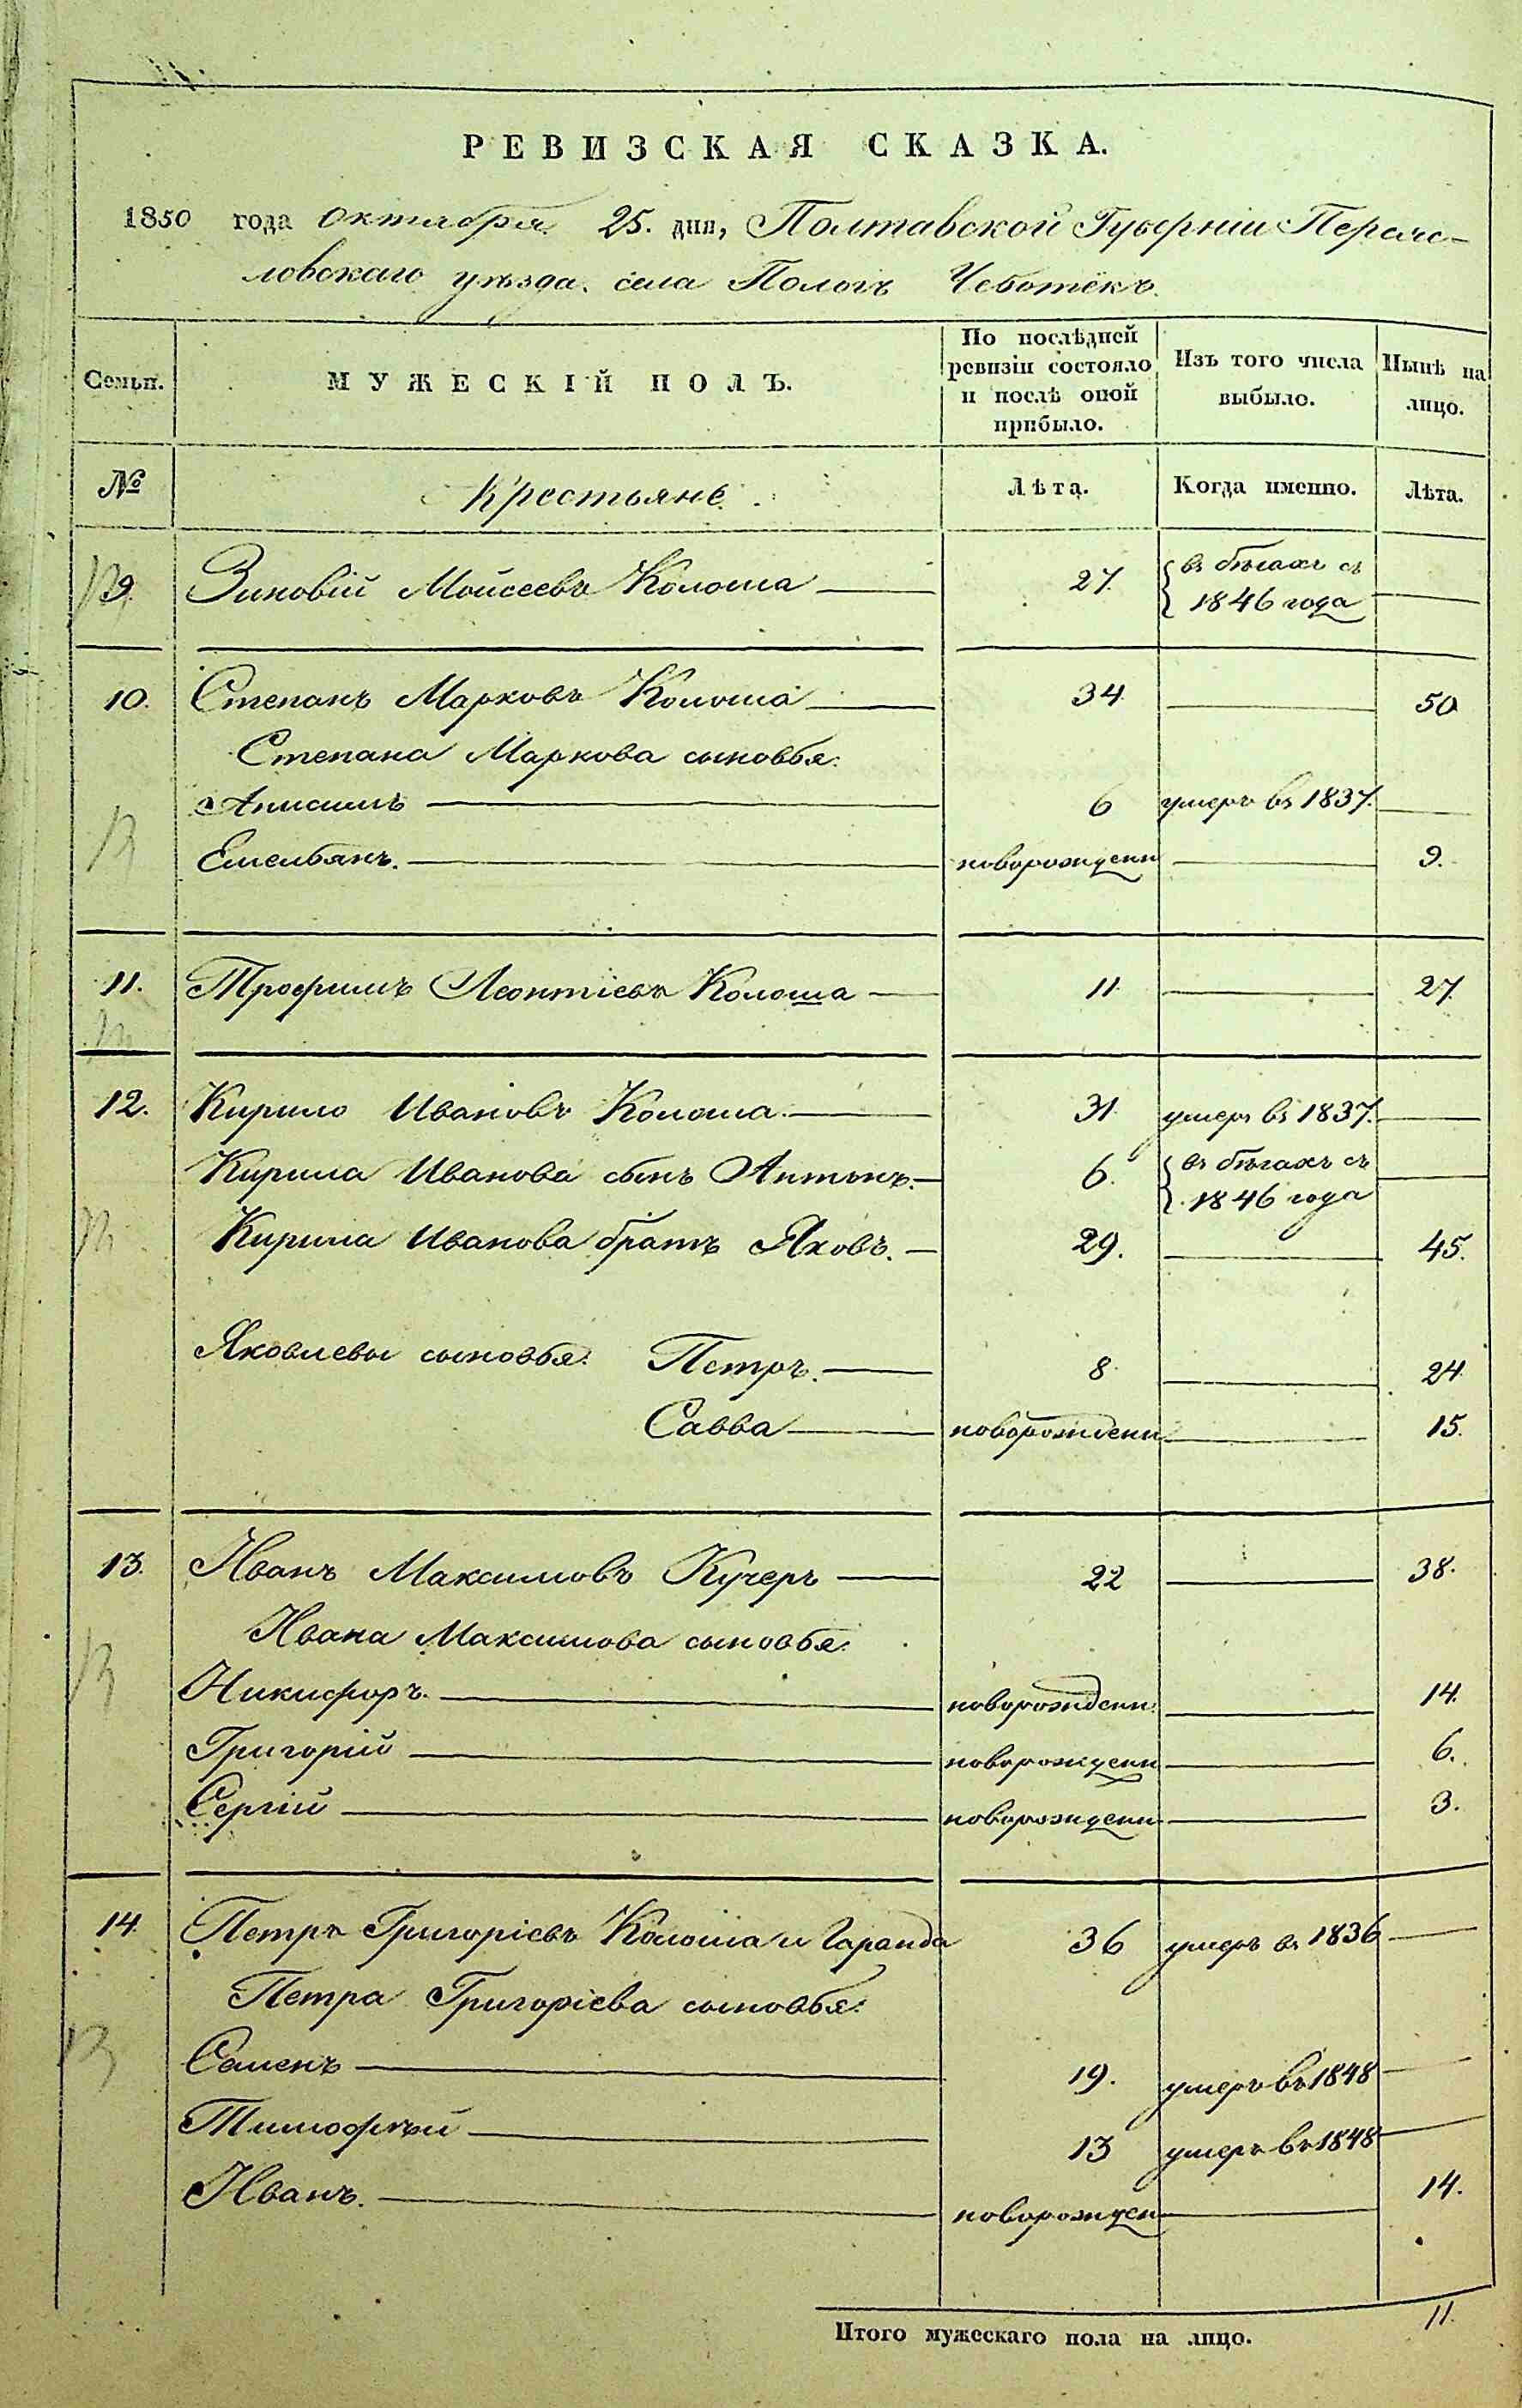 РЕВИЗСКАЯ СКАЗКА.
1850 года октября 25. дня, Полтавской Губерніи Переяс-
ловскаго уѣзда. села Пологъ Чеботёкъ.
Семьи. МУЖЕСКІЙ ПОЛЪ. По послѣдней ревизіи состояло и послѣ оной прибыло. Изъ того числа выбыло. Нынѣ на лицо.
№ Крестьяне. Лѣта. Когда именно. Лѣта.
9. Зиновій Мойсеевъ Колоша 27. въ бѣгахъ съ 1846 года
10. Степанъ Марковъ Колоша 34 50
Степана Маркова сыновья:
Анисимъ 6 умеръ въ 1837.
Емельянъ. новорожденн 9.
11. Трофимъ Леонтіевъ Колоша 11 27
12. Кирило Ивановъ Колоша. 31 умеръ въ 1837.
Кирила Иванова сынъ Антонъ. 6. въ бѣгахъ съ 1846 года
Кирила Иванова братъ Яковъ. 29. 45.
Яковлевы сыновья: Петръ. 8 24
Савва новорожденн 15.
13. Иванъ Максимовъ Кучеръ 22 38.
Ивана Максимова сыновья:
Никифоръ. новорожденн. 14.
Григорій новорожденн 6.
Сергій новорожденн 3.
14. Петръ Григоріевъ Колоша и Гаранда 36 умеръ въ 1836
Петра Григоріева сыновья:
Семенъ 19. умеръ въ 1848
Тимофѣй 13 умеръ въ 1848
Иванъ. новорожден 14.
Итого мужескаго пола на лицо. 11.